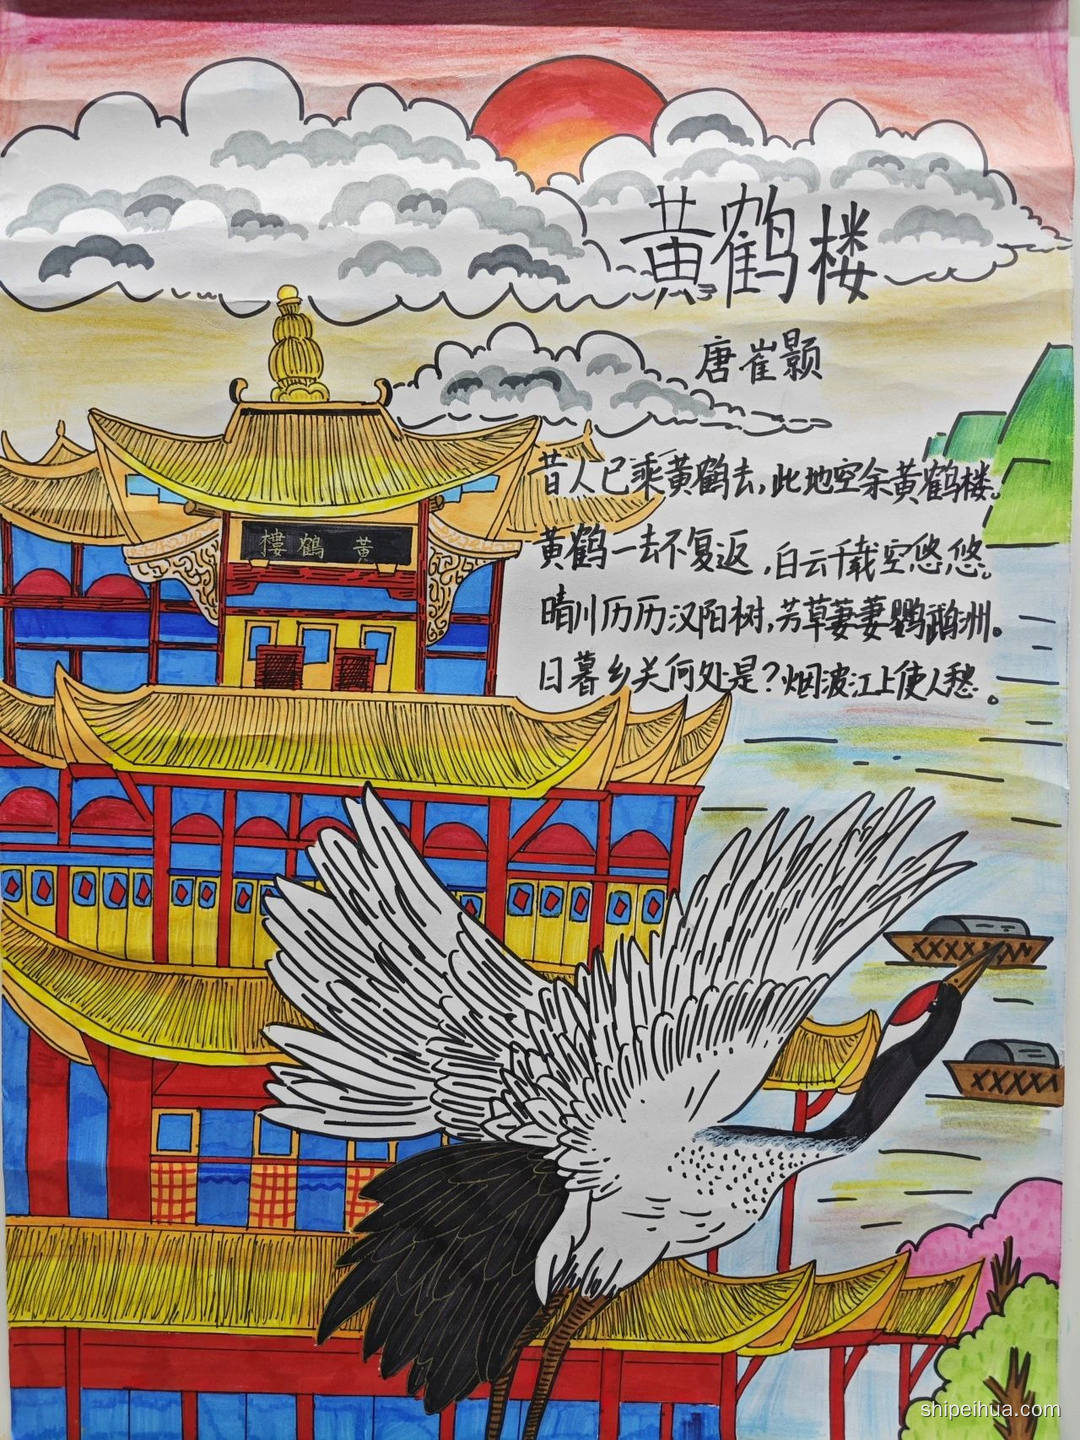 黄鹤楼
唐崔颢
昔人已乘黄鹤去,此地空余黄鹤楼。
黄鹤一去不复返,白云千载空悠悠。
晴川历历汉阳树,芳草萋萋鹦鹉洲。
日暮乡关何处是?烟波江上使人愁。
樓鶴黄
shipeihua.com